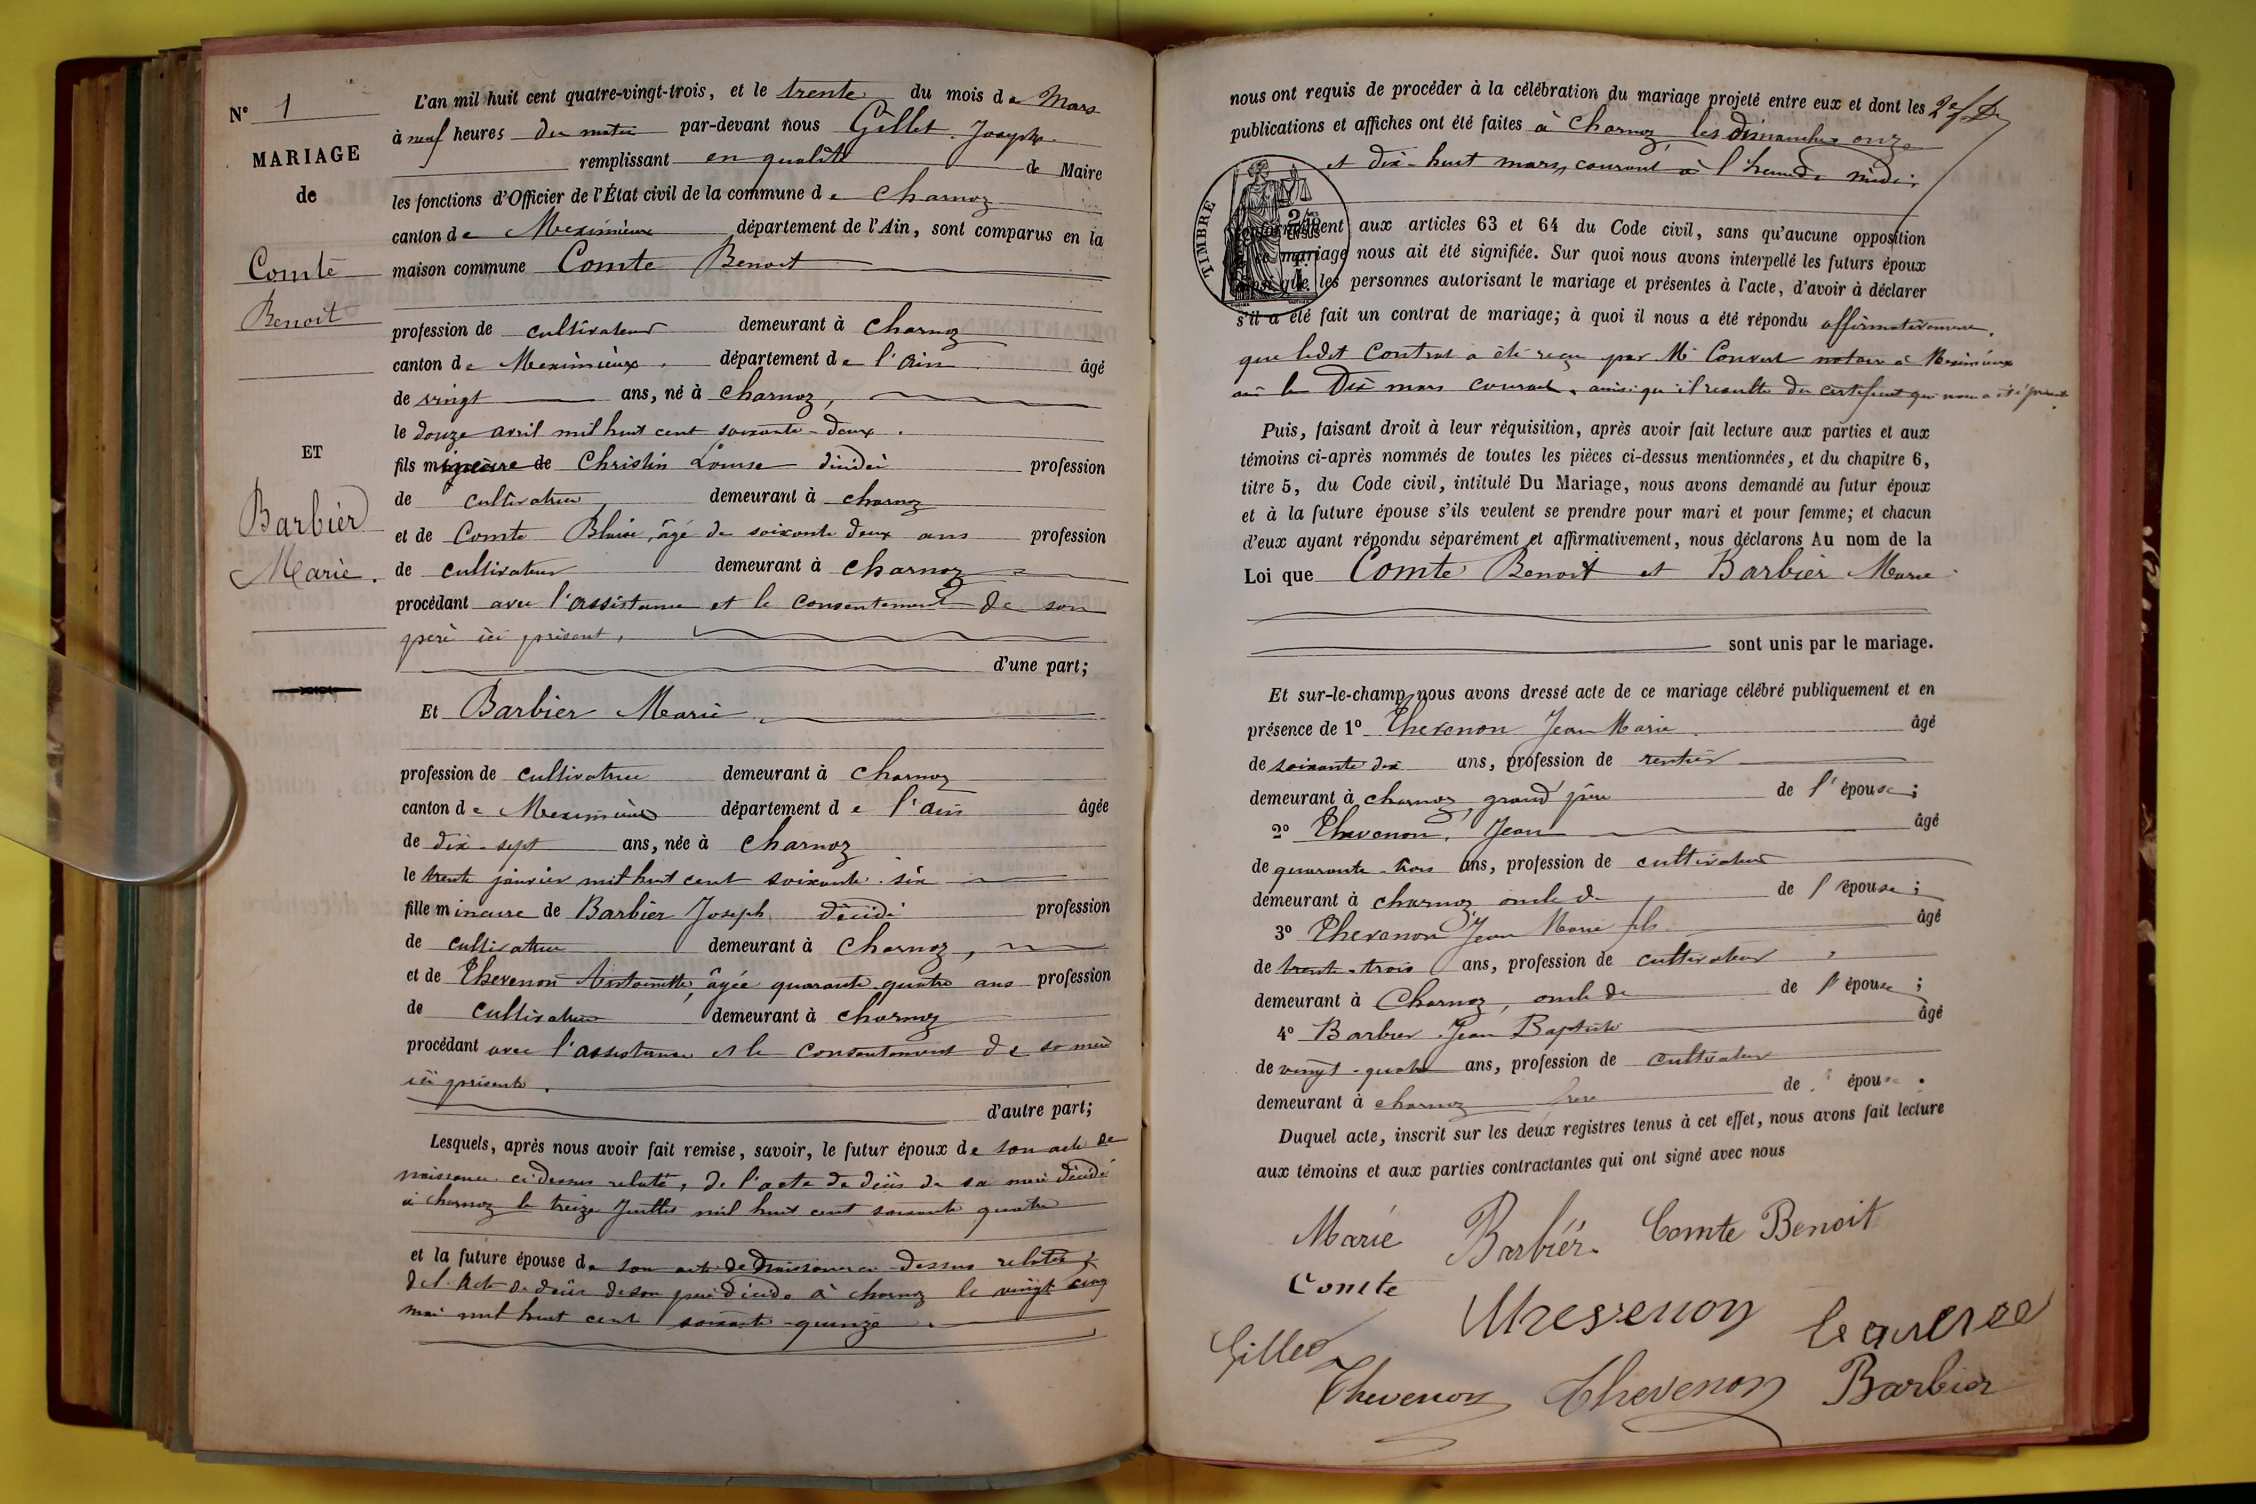 N° 1
MARIAGE
de
Comte
Benoit
ET
Barbier
Marie.
L'an mil huit cent quatre-vingt-trois, et le trente du mois de Mars
à neuf heures du matin par-devant nous Gillet Joseph
remplissant en qualité de Maire
les fonctions d'Officier de l'État civil de la commune de Charnoz
canton de Meximieux département de l'Ain, sont comparus en la
maison commune Comte Benoit
profession de cultivateur demeurant à Charnoz
canton de Meximieux, département de l'Ain âgé
de vingt ans, né à Charnoz,
le douze avril mil huit cent soixante-deux.
fils mineure de Christin Louise décédée profession
de cultivatrice demeurant à charnoz
et de Comte Blaise, âgé de soixante deux ans profession
de cultivateur demeurant à charnoz
procédant avec l'assistance et le consentement de son
père ici présent,
d'une part;
Et Barbier Marie
profession de cultivatrice demeurant à Charnoz
canton de Meximieux département de l'ain âgée
de dix-sept ans, née à Charnoz
le trente janvier mil huit cent soixante-six
fille mineure de Barbier Joseph décédé profession
de cultivateur demeurant à Charnoz,
et de Thevenon Antoinette, âgée quarante-quatre ans profession
de cultivatrice demeurant à charnoz
procédant avec l'assistance et le consentement de sa mère
ici présente.
d'autre part;
Lesquels, après nous avoir fait remise, savoir, le futur époux de son acte de
naissance ci dessus relaté, de l'acte de décès de sa mère décédée
à charnoz le treize Juillet mil huit cent soixante quatre
et la future épouse de son acte de naissance ci-dessus relaté &
de l'acte de décès de son père décédé à charnoz le vingt cinq
mai mil huit cent soixante-quinze.
nous ont requis de procéder à la célébration du mariage projeté entre eux et dont les 2 f. D
publications et affiches ont été faites à Charnoz, les dimanches onze
et dix-huit mars, courant à l'heure de midi;
TIMBRE
2/10mes
EN SUS
conformément aux articles 63 et 64 du Code civil, sans qu'aucune opposition
à ce mariage nous ait été signifiée. Sur quoi nous avons interpellé les futurs époux
ainsi que les personnes autorisant le mariage et présentes à l'acte, d'avoir à déclarer
s'il a été fait un contrat de mariage; à quoi il nous a été répondu affirmativement.
que ledit Contrat a été reçu par Me Convert notaire à Meximieux
le Dix mars courant, ainsi qu'il résulte du certificat qui nous a été présenté.
Puis, faisant droit à leur réquisition, après avoir fait lecture aux parties et aux
témoins ci-après nommés de toutes les pièces ci-dessus mentionnées, et du chapitre 6,
titre 5, du Code civil, intitulé Du Mariage, nous avons demandé au futur époux
et à la future épouse s'ils veulent se prendre pour mari et pour femme; et chacun
d'eux ayant répondu séparément et affirmativement, nous déclarons Au nom de la
Loi que Comte Benoit et Barbier Marie
sont unis par le mariage.
Et sur-le-champ nous avons dressé acte de ce mariage célébré publiquement et en
présence de 1° Thevenon Jean Marie âgé
de soixante dix ans, profession de rentier
demeurant à charnoz, grand père de l'épouse;
2° Thevenon, Jean âgé
de quarante-trois ans, profession de cultivateur
demeurant à charnoz oncle de de l'épouse;
3° Thevenon Jean Marie fils âgé
de trente-trois ans, profession de cultivateur,
demeurant à Charnoz, oncle de de l'épouse;
4° Barbier Jean Baptiste âgé
de vingt-quatre ans, profession de cultivateur
demeurant à charnoz frère de l'épouse.
Duquel acte, inscrit sur les deux registres tenus à cet effet, nous avons fait lecture
aux témoins et aux parties contractantes qui ont signé avec nous
Marie Barbier. Comte Benoit
Comte
Gillet
Thevenon Thevenon Barbier